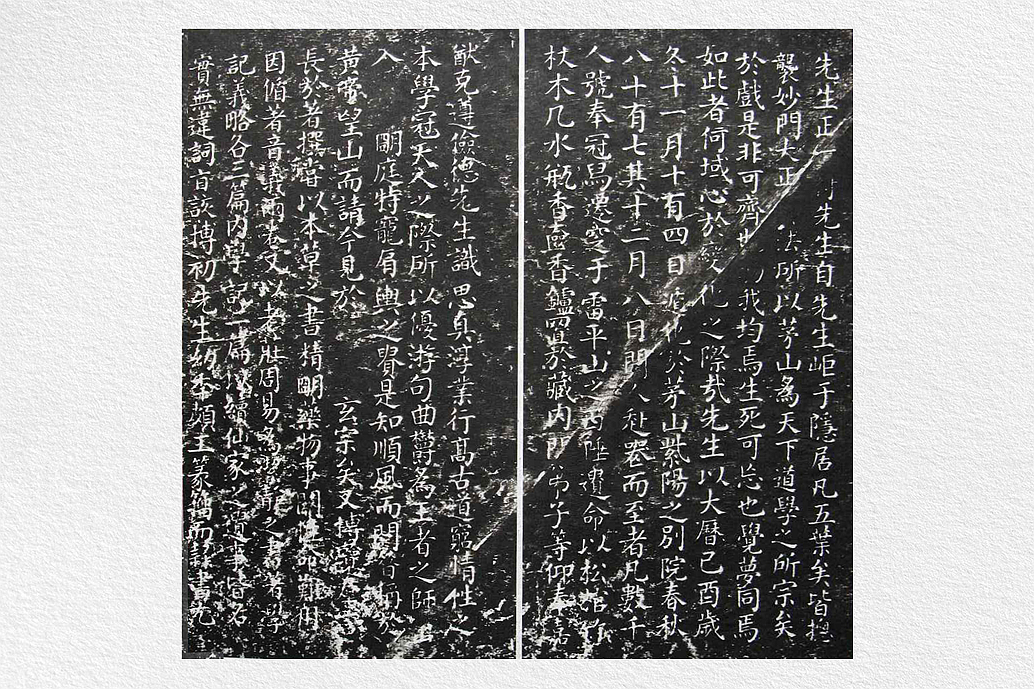 先生正一付先生自先生岠于隱居凡五葉矣皆摠
襲妙門大正法所以茅山為天下道學之所宗矣
於戲是非可齊我均焉生死可忘也覺夢同焉
如此者何域心於化之際哉先生以大曆己酉歲
冬十一月十有四日化於茅山紫陽之別院春秋
八十有七其十二月八日門人赴喪而至者凡數千
人號奉冠舄遷窆于雷平山之西陲遺命以松棺竹
杖木几水瓶香奩香鑪置於藏內門弟子等仰奉
猷克遵儉德先生識思真淳業行高古道窮情性之
本學冠天人之際所以優游句曲鬱為王者之師出
入 明庭特寵肩輿之貴是知順風而問者稱於
黃帝望山而請今見於 玄宗矣又博
長於著撰嘗以本草之書精明藥物事關性命難用
因循著音義兩卷又以老莊周易為之書著學
記義略各三篇內學記一篇以續仙家之遺事皆名
實無違詞旨該博初先生幼年頗工篆籀而隸書尤